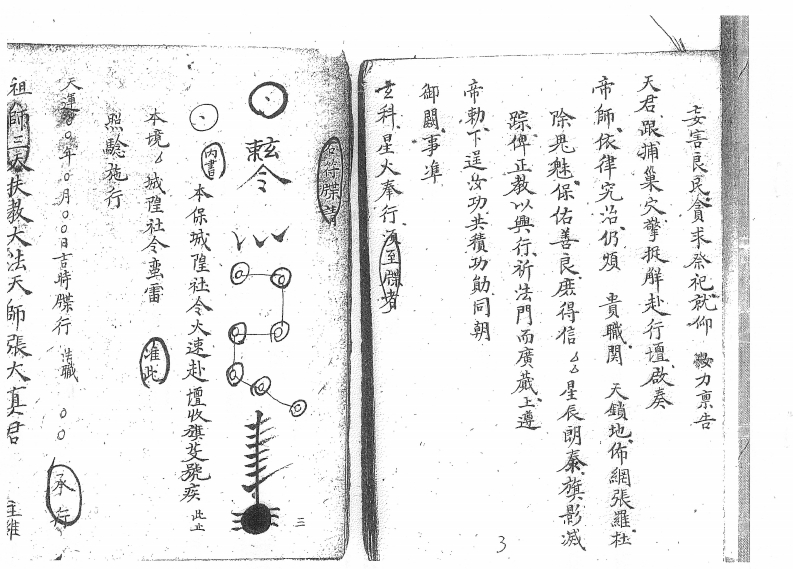 妄害良民貪求祭祀就仰 力禀告
天君跟捕巢穴擎挺解赴行壇啟奏
帝師依律究治仍煩 貴職関 天鎖地佈網張羅杜
除鬼魅保佑善良庶得信 星辰朗泰旗影滅
踪俾正教以興行祈法門而廣蕆上遵
帝勅下逞汝功共積功勛同朝
御闕事準
玄科星火奉行須至牒者
3
符牒請
敕令
三
內書 本保城隍社令火速赴壇收旗 號疾 此止
本境 城隍社令蛮雷 准此
照驗施行
天運 〇年〇月〇〇日吉時牒行 職 〇〇 承行
祖師三天扶教大法天師張大真君 主雑